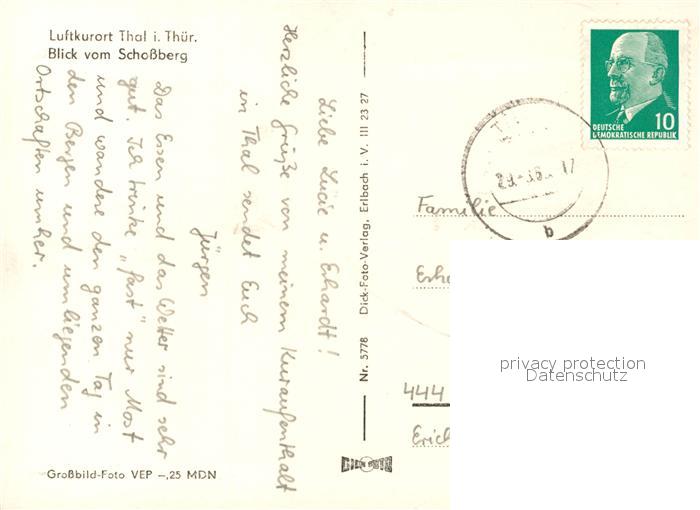 Luftkurort Thal i. Thür.
Blick vom Schoßberg
Liebe Lucie u. Erhardt!
Herzliche Grüße von meinem Kuraufenthalt
in Thal sendet Euch
Jürgen
Das Essen und das Wetter sind sehr
gut. Ich trinke „fast" nur Most
und wandere den ganzen Tag in
den Bergen und umliegenden
Ortschaften umher.
Großbild-Foto VEP –,25 MDN
Nr. 5778 Dick-Foto-Verlag, Erlbach i. V. III 23 27
DEUTSCHE
DEMOKRATISCHE REPUBLIK
10
b
Familie
444
privacy protection
Datenschutz